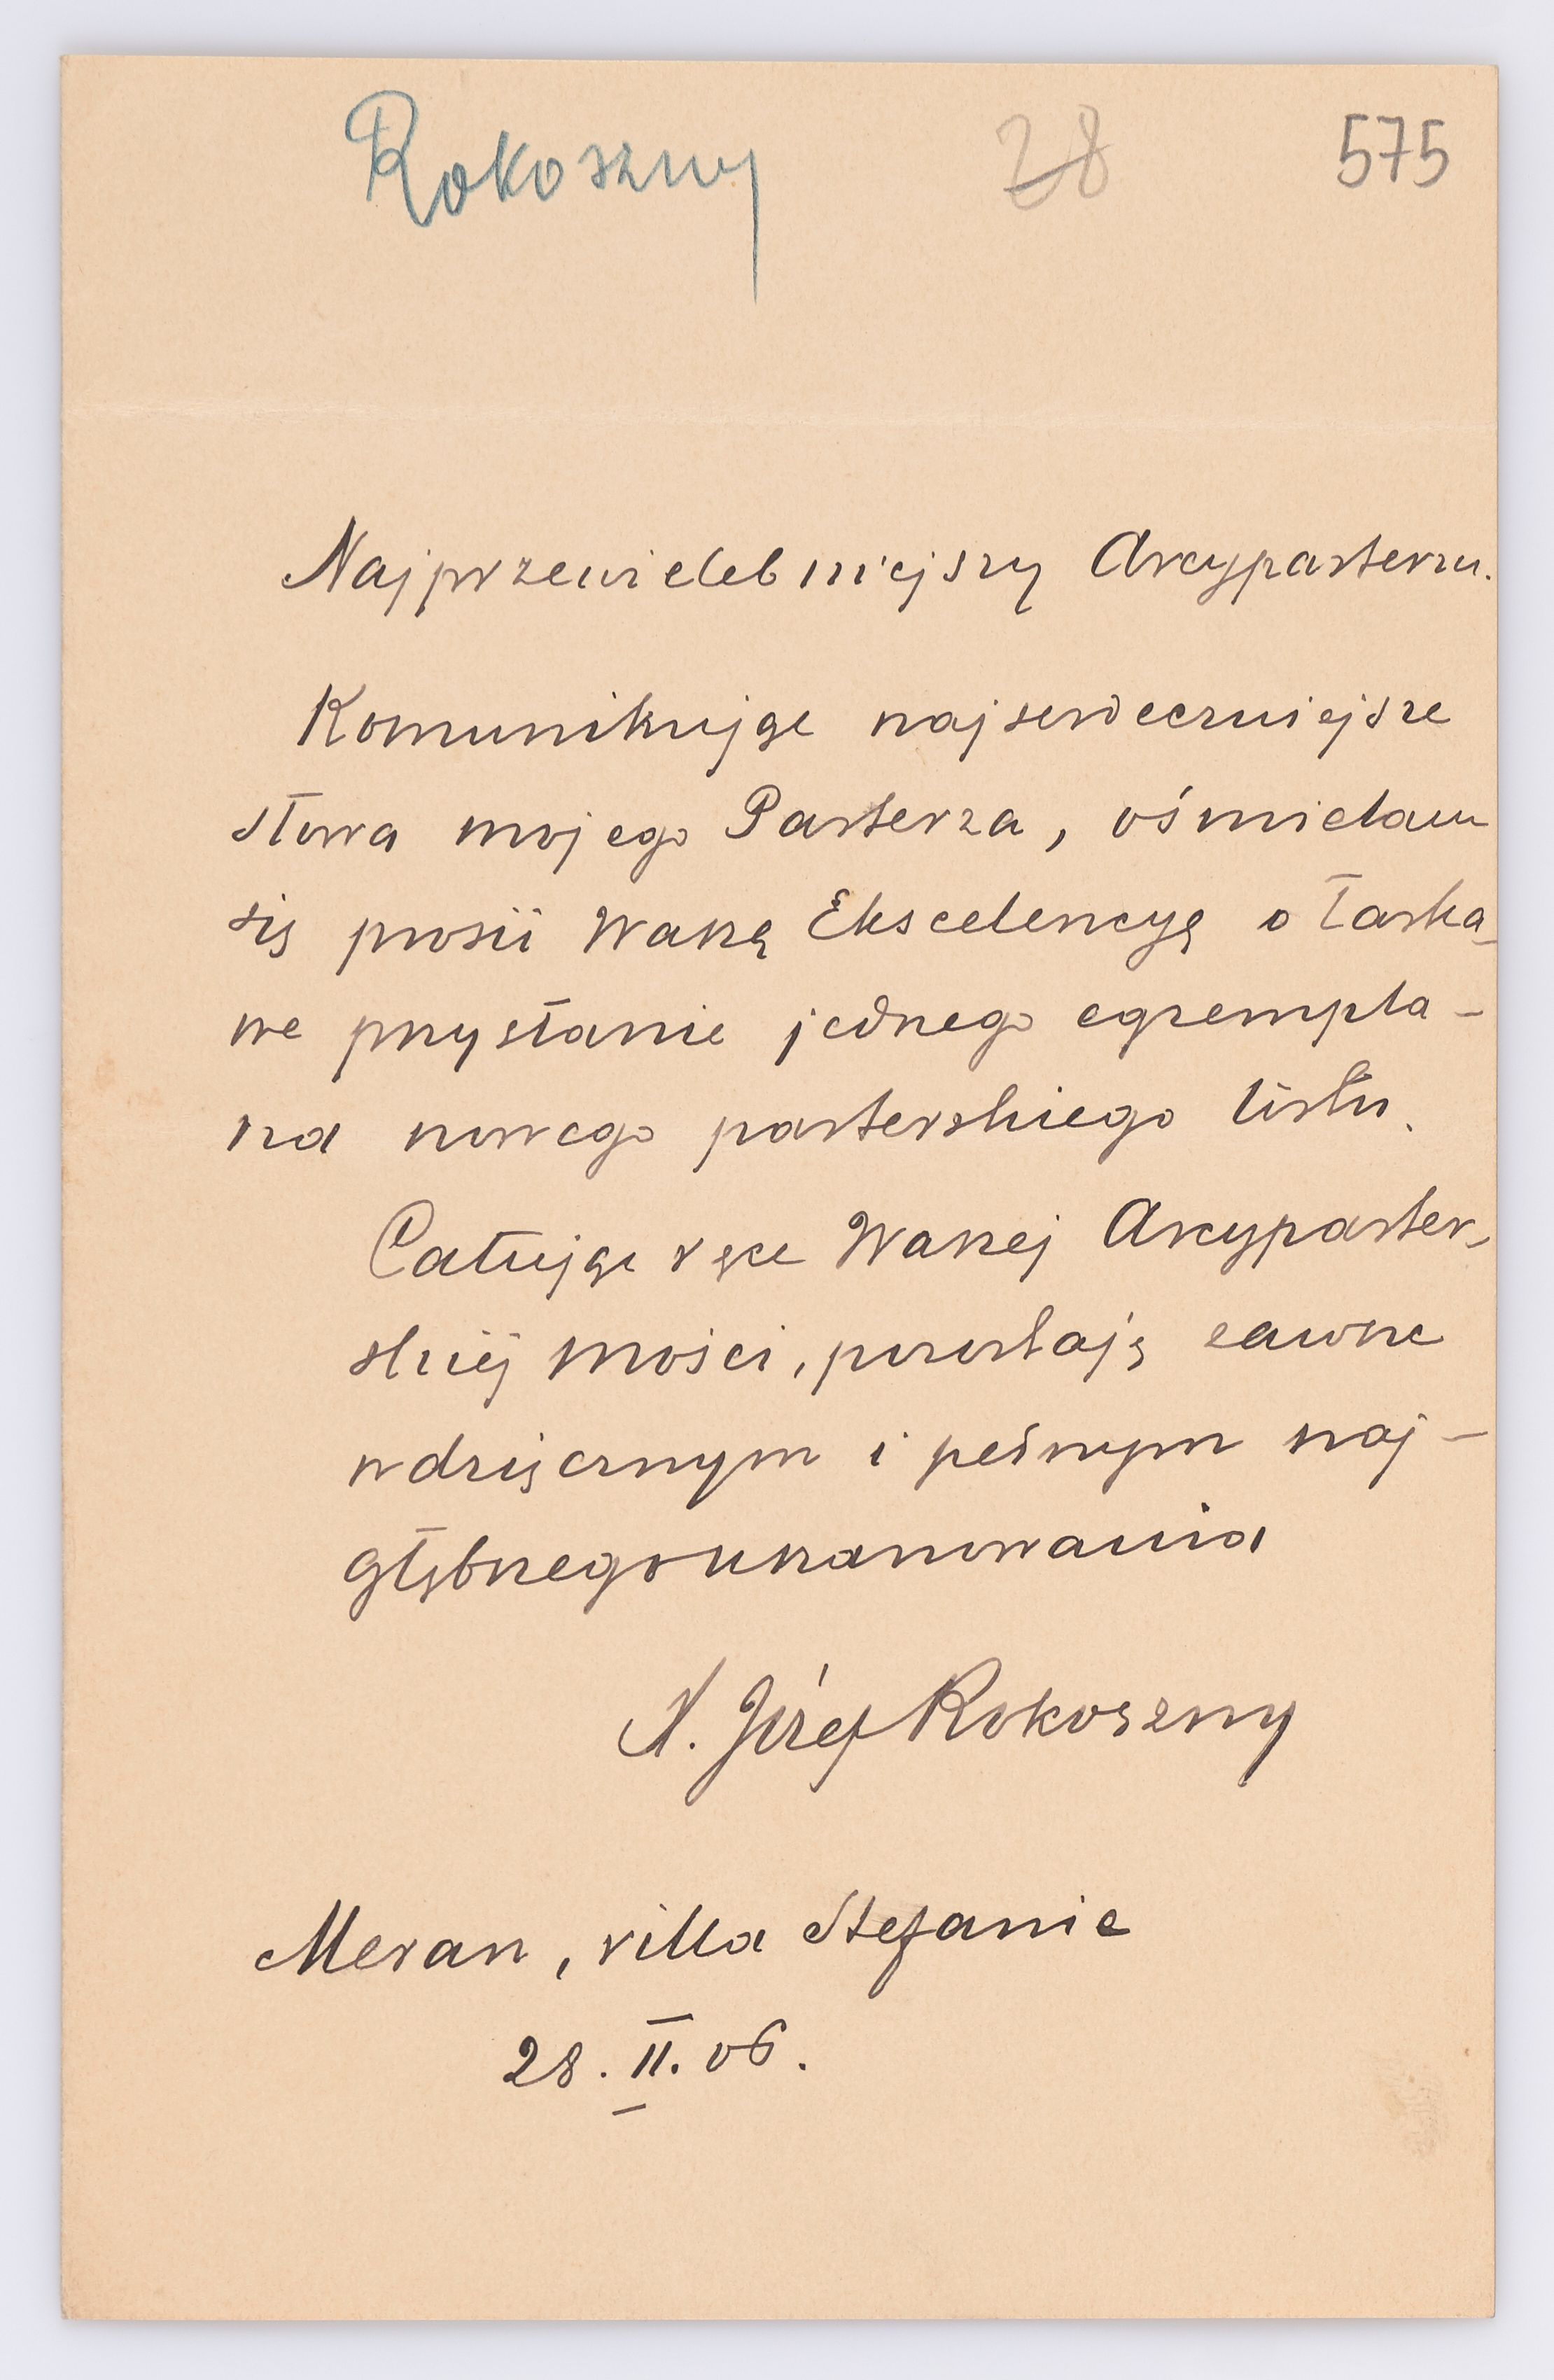 Rokoszny 28 575
Najprzewielebniejszy Arcypasterzu.
Komunikując najserdeczniejsze
słowa mojego Pasterza, ośmielam
się prosić Waszą Ekscelencyę o łaska-
we przysłanie jednego egzempla-
rza nowego pasterskiego listu.
Całując ręce Waszej Arcypaster-
skiej Mości, pozostaję zawsze
wdzięcznym i pełnym naj-
głębszego uszanowania
X. Józef Rokoszny
Meran, villa Stefanie
28. II. 06.